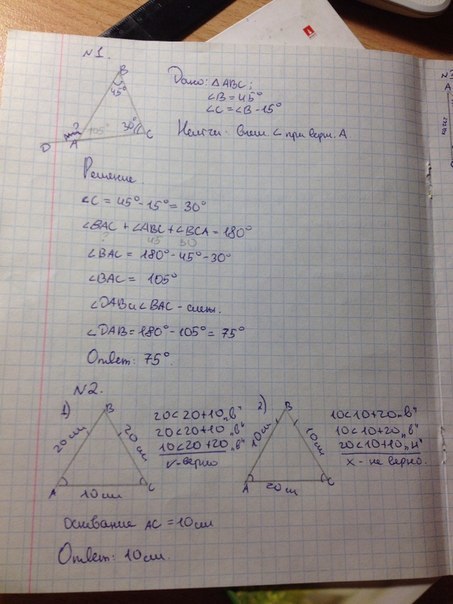 №1.
B
45°
Дано: △ABC;
∠B = 45°
∠C = ∠B - 15°
Найти: внеш. ∠ при верш. A
? 105° 30° C
D A
Решение
∠C = 45° - 15° = 30°
∠BAC + ∠ABC + ∠BCA = 180°
? 45 30
∠BAC = 180° - 45° - 30°
∠BAC = 105°
∠DAB и ∠BAC - смежн.
∠DAB = 180° - 105° = 75°
Ответ: 75°.
№2.
1) B
20 см 20 см
A 10 см C
20 < 20 + 10 „в"
20 < 20 + 10 „в"
10 < 20 + 20 „в"
v - верно
2) B
10 см 10 см
A 20 см C
10 < 10 + 20 „в"
10 < 10 + 20 „в"
20 < 10 + 10 „н"
x - не верно.
Основание AC = 10 см
Ответ: 10 см.